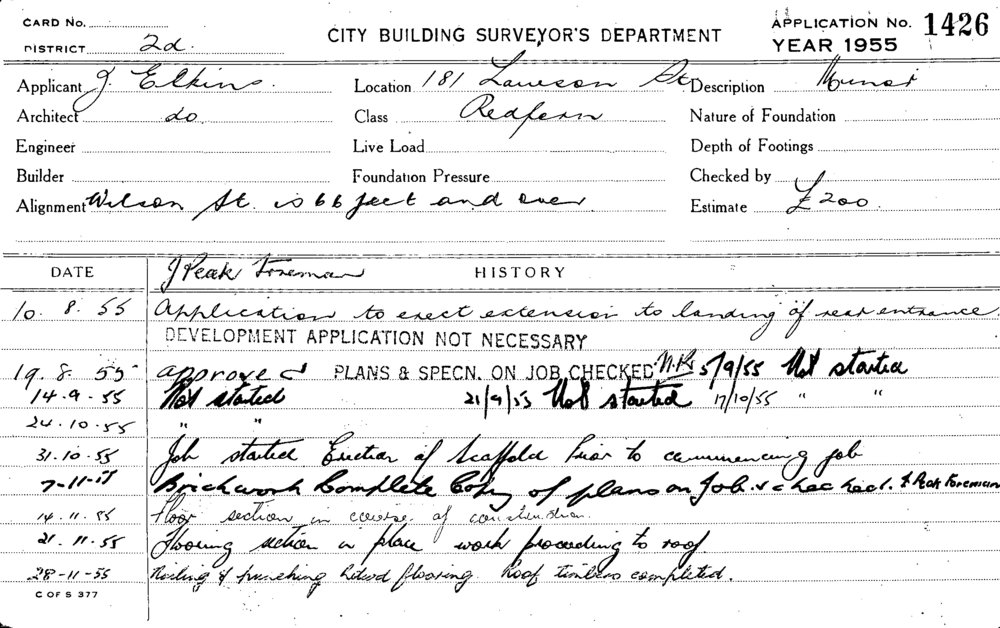 CARD No. CITY BUILDING SURVEYOR'S DEPARTMENT APPLICATION No. 1426
DISTRICT 2d. YEAR 1955
Applicant J. Elkins. Location 181 Lawson St Description Minor
Architect do. Class Redfern Nature of Foundation
Engineer Live Load Depth of Footings
Builder Foundation Pressure Checked by
Alignment Wilson St. is 66 feet and over. Estimate £200.
DATE J Peak Foreman HISTORY
10. 8. 55 Application to erect extension to landing of rear entrance.
DEVELOPMENT APPLICATION NOT NECESSARY
19. 8. 55 approved PLANS & SPECN. ON JOB CHECKED 5/9/55 Not started
14.9.55 Not started 21/9/55 Not started 17/10/55 " "
24.10.55 " "
31.10.55 Job started Erection of Scaffold Prior to commencing job
7-11-55 Brickwork Complete Copy of plans on Job & checked. J Peak Foreman
14.11.55 Floor section in course of construction.
21.11.55 Flooring section in place work proceeding to roof
28-11-55 & punching flooring. Roof timbers completed.
C OF S 377